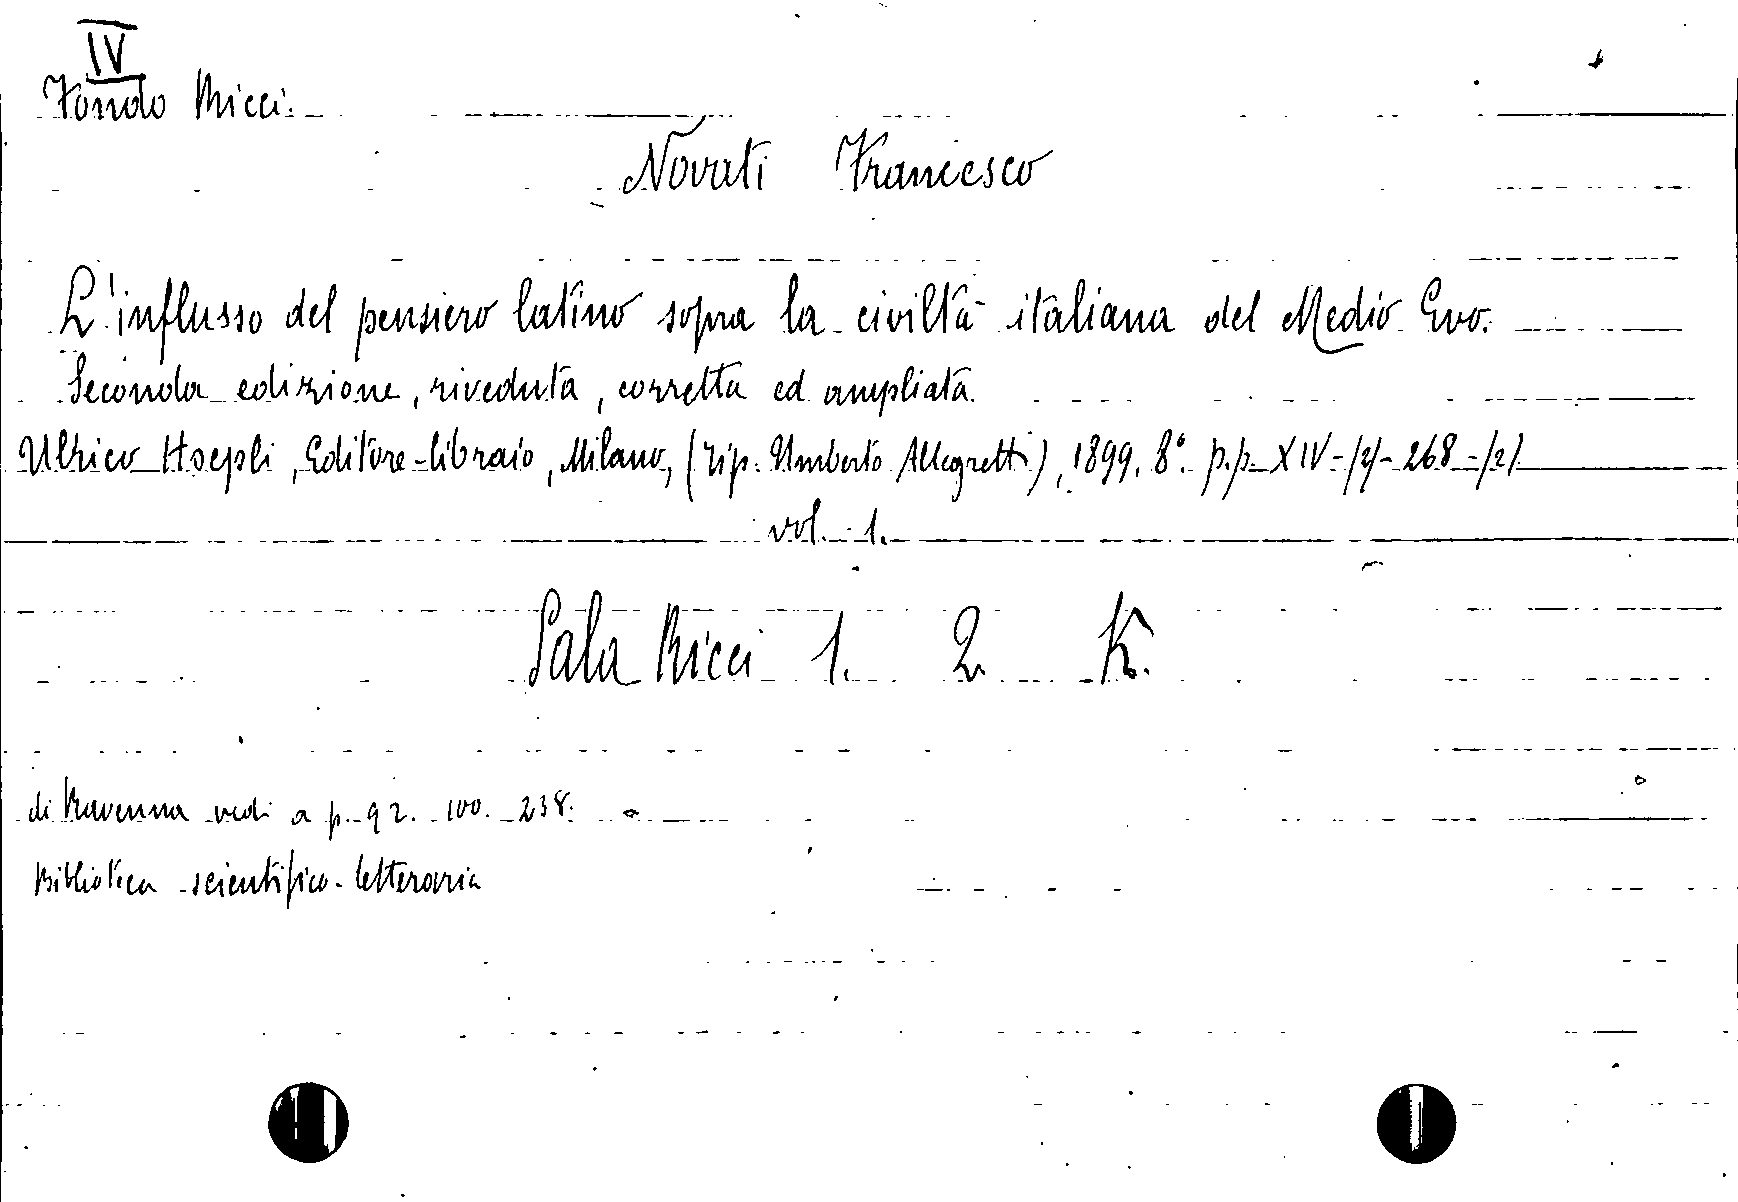 IV
Fondo Ricci.
Novati Francesco
L'influsso del pensiero latino sopra la civiltà italiana del Medio Evo.
Seconda edizione, riveduta, corretta ed ampliata.
Ulrico Hoepli, Editore-libraio, Milano, (Tip. Umberto Allegretti), 1899. 8°. p.p. XIV-/2/-268-/2/
vol. 1.
Sala Ricci 1. 2 K.
di Ravenna vedi a p. 92. 100. 238.
Biblioteca scientifico-letteraria